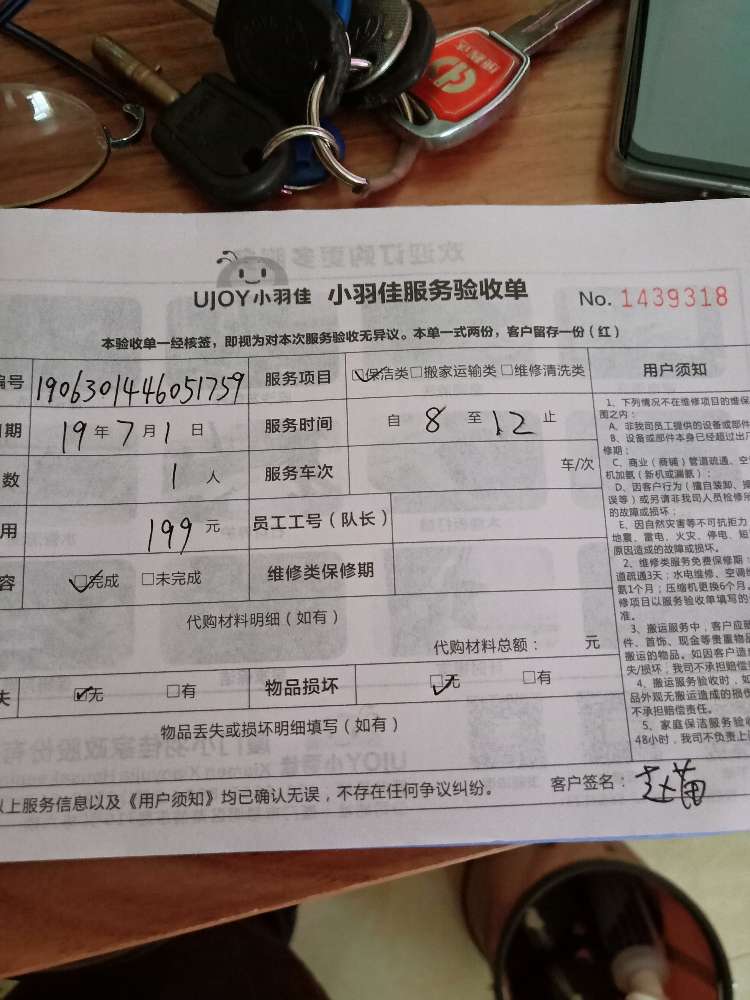 UJOY小羽佳 小羽佳服务验收单 No. 1439318
本验收单一经核签，即视为对本次服务验收无异议。本单一式两份，客户留存一份（红）
编号 1906301446051759 服务项目 ☑保洁类□搬家运输类□维修清洗类 用户须知
日期 19年7月1日 服务时间 自 8 至 12 止
数 1 人 服务车次 车/次
用 199 元 员工工号（队长）
容 ☑完成 □未完成 维修类保修期
代购材料明细（如有）
代购材料总额： 元
失 ☑无 □有 物品损坏 ☑无 □有
物品丢失或损坏明细填写（如有）
以上服务信息以及《用户须知》均已确认无误，不存在任何争议纠纷。 客户签名：
1、下列情况不在维修项目的维保
围之内：
A、非我司员工提供的设备或部件
B、设备或部件本身已经超过出厂
修期；
C、商业（商铺）管道疏通、空
机加氨（新机或漏氨）；
D、因客户行为（擅自装卸、操
误等）或另请非我司人员检修
的故障或损坏；
E、因自然灾害等不可抗拒力
地震、雷电、火灾、停电、短
原因造成的故障或损坏。
2、维修类服务免费保修期：
道疏通3天；水电维修、空调
氨1个月；压缩机更换6个月。
修项目以服务验收单填写的
准。
3、搬运服务中，客户应
件、首饰、现金等贵重物
搬运的物品。如因客户造
失/损坏，我司不承担赔偿
4、搬运服务验收时，如
品外观无搬运造成的损
不承担赔偿责任。
5、家庭保洁服务验收
48小时，我司不负责上